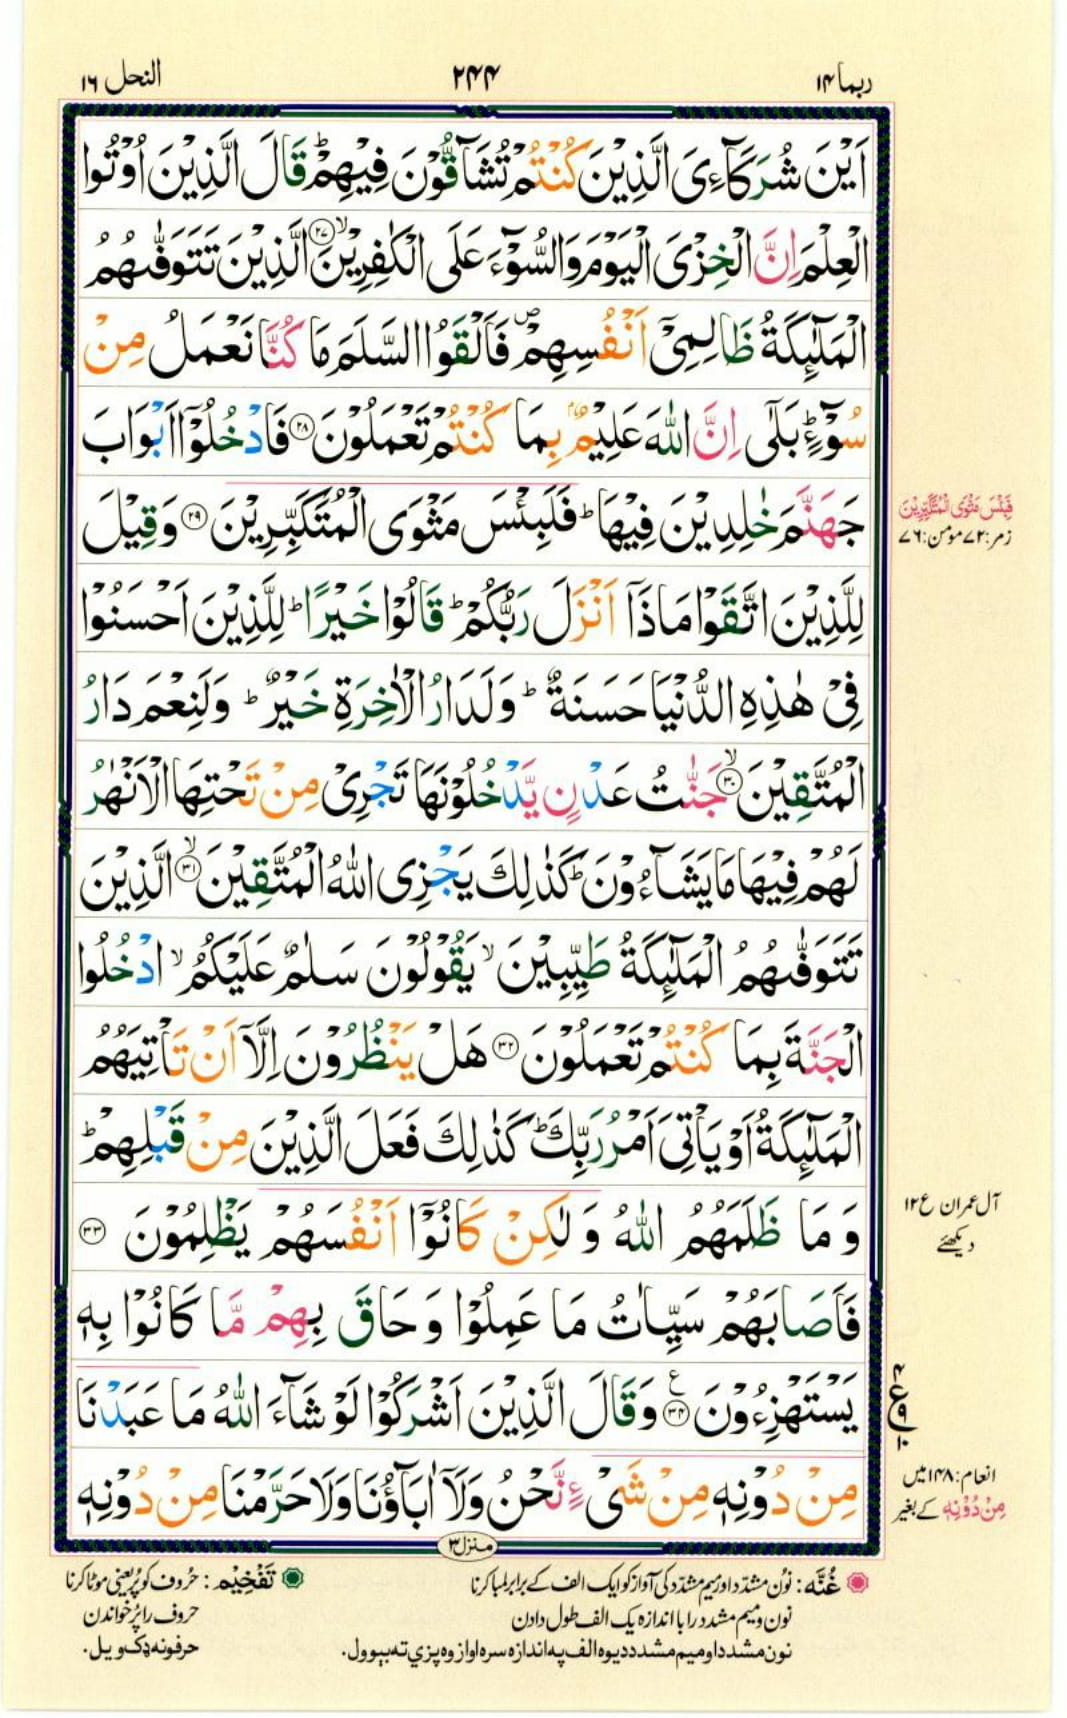 ربما ۱۴
۲۴۴
النحل ۱۶
اَيْنَ شُرَكَآءِىَ الَّذِيْنَ كُنْتُمْ تُشَآقُّوْنَ فِيْهِمْ ؕ قَالَ الَّذِيْنَ اُوْتُوا
الْعِلْمَ اِنَّ الْخِزْىَ الْيَوْمَ وَالسُّوْٓءَ عَلَى الْكٰفِرِيْنَ ۙ‏﴿۲۷﴾ الَّذِيْنَ تَتَوَفّٰٮهُمُ
الْمَلٰٓئِكَةُ ظَالِمِىْٓ اَنْفُسِهِمْ ۪ فَاَلْقَوُا السَّلَمَ مَا كُنَّا نَعْمَلُ مِنْ
سُوْٓءٍ ؕ بَلٰٓى اِنَّ اللّٰهَ عَلِيْمٌۢ بِمَا كُنْتُمْ تَعْمَلُوْنَ ﴿۲۸﴾ فَادْخُلُوْٓا اَبْوَابَ
جَهَنَّمَ خٰلِدِيْنَ فِيْهَا ؕ فَلَبِئْسَ مَثْوَى الْمُتَكَبِّرِيْنَ ﴿۲۹﴾ وَقِيْلَ
لِلَّذِيْنَ اتَّقَوْا مَاذَآ اَنْزَلَ رَبُّكُمْ ؕ قَالُوْا خَيْرًا ؕ لِلَّذِيْنَ اَحْسَنُوْا
فِىْ هٰذِهِ الدُّنْيَا حَسَنَةٌ ؕ وَلَدَارُ الْاٰخِرَةِ خَيْرٌ ؕ وَلَنِعْمَ دَارُ
الْمُتَّقِيْنَ ۙ﴿۳۰﴾ جَنّٰتُ عَدْنٍ يَّدْخُلُوْنَهَا تَجْرِىْ مِنْ تَحْتِهَا الْاَنْهٰرُ
لَهُمْ فِيْهَا مَا يَشَآءُوْنَ ؕ كَذٰلِكَ يَجْزِى اللّٰهُ الْمُتَّقِيْنَ ۙ﴿۳۱﴾ الَّذِيْنَ
تَتَوَفّٰٮهُمُ الْمَلٰٓئِكَةُ طَيِّبِيْنَ ۙ يَقُوْلُوْنَ سَلٰمٌ عَلَيْكُمُ ۙ ادْخُلُوا
الْجَنَّةَ بِمَا كُنْتُمْ تَعْمَلُوْنَ ﴿۳۲﴾ هَلْ يَنْظُرُوْنَ اِلَّآ اَنْ تَاْتِيَهُمُ
الْمَلٰٓئِكَةُ اَوْ يَاْتِىَ اَمْرُ رَبِّكَ ؕ كَذٰلِكَ فَعَلَ الَّذِيْنَ مِنْ قَبْلِهِمْ ؕ
وَمَا ظَلَمَهُمُ اللّٰهُ وَلٰكِنْ كَانُوْٓا اَنْفُسَهُمْ يَظْلِمُوْنَ ﴿۳۳﴾
فَاَصَابَهُمْ سَيِّاٰتُ مَا عَمِلُوْا وَحَاقَ بِهِمْ مَّا كَانُوْا بِهٖ
يَسْتَهْزِءُوْنَ ﴿۳۴﴾ ع وَقَالَ الَّذِيْنَ اَشْرَكُوْا لَوْ شَآءَ اللّٰهُ مَا عَبَدْنَا
مِنْ دُوْنِهٖ مِنْ شَىْءٍ نَّحْنُ وَلَآ اٰبَآؤُنَا وَلَا حَرَّمْنَا مِنْ دُوْنِهٖ
منزل ۳
فَبِئْسَ مَثْوَى الْمُتَكَبِّرِيْنَ
زمر: ۷۲ مومن: ۷۶
آل عمران ع ۱۲
دیکھئے
۴
ع ۹
۱۰
انعام: ۱۴۸ میں
مِنْ دُوْنِهٖ کے بغیر
غُنَّه: نون مشدد اور میم مشدد کی آواز کو ایک الف کے برابر لمبا کرنا
نون و میم مشدد را با اندازه یک الف طول دادن
نون مشدد او میم مشدد د یوه الف په اندازه سره اواز وه پزې ته بېوول.
تَفْخِيْم: حُروف کو پُر یعنی موٹا کرنا
حروف را پُر خواندن
حرفونه ډک ویل.